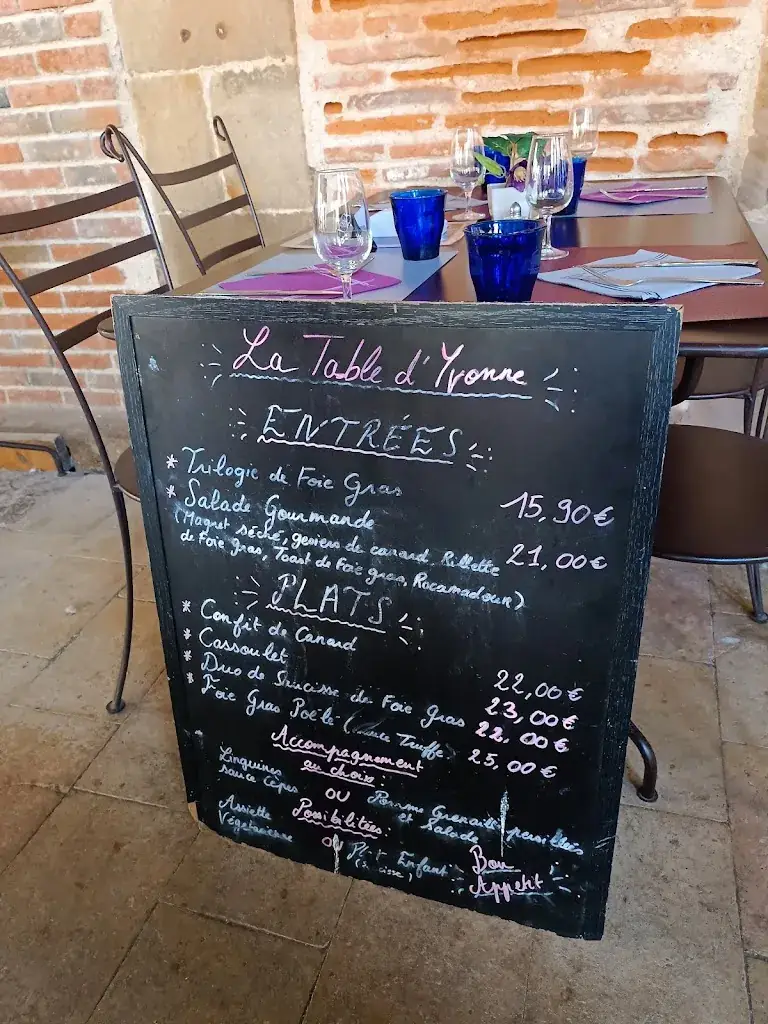 La Table d'Yvonne
ENTRÉES
* Trilogie de Foie Gras 15,90€
* Salade Gourmande 21,00€
(Magret séché, gesiers de canard, Rillette
de Foie gras, Toast de Foie gras, Rocamadour)
PLATS
* Confit de Canard 22,00€
* Cassoulet 23,00€
* Duo de Saucisse de Foie Gras 22,00€
* Foie Gras Poêlé (sauce Truffe) 25,00€
Accompagnement
au choix:
Linguines
sauce cèpes
OU
Pomme Grenaille persillées
et Salade
Possibilitées:
Assiette
Végétarienne
OU
Plat Enfant
Bon
Appetit